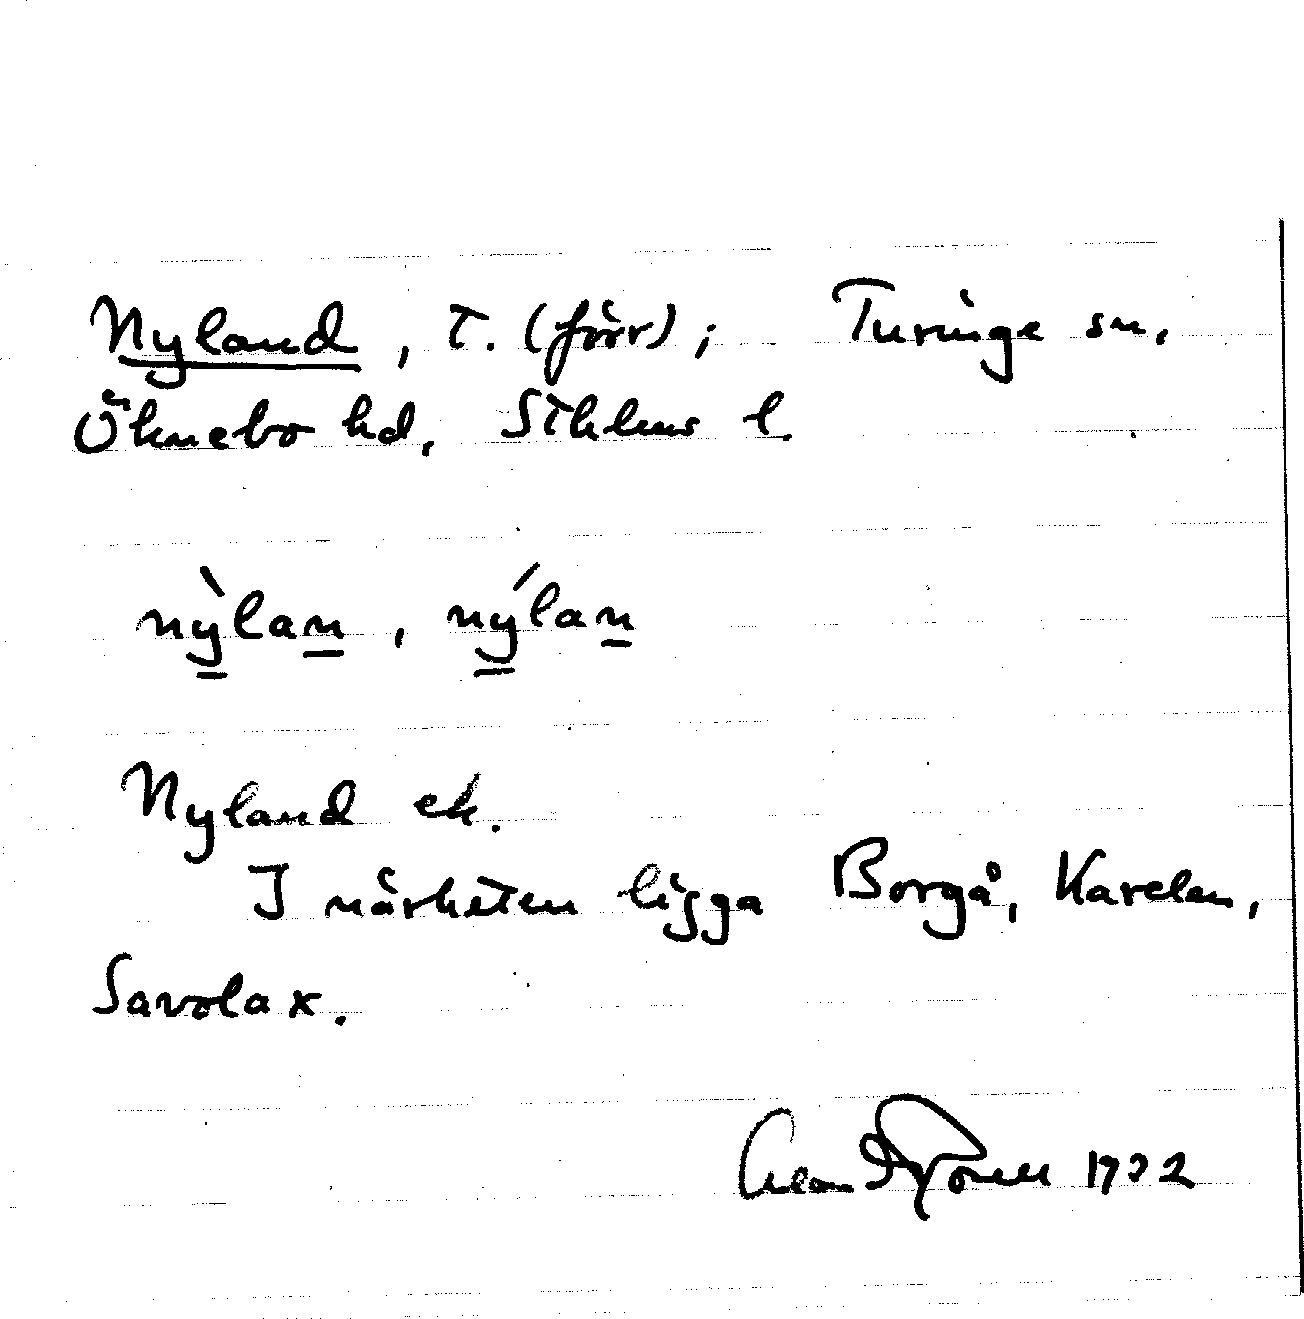 Nyland, T. (förr); Turinge sn,
Öknebo hd, Sthlms l.
nỳlan, nýlan
Nyland ek.
I närheten ligga Borgå, Karelen,
Savolax.
1932